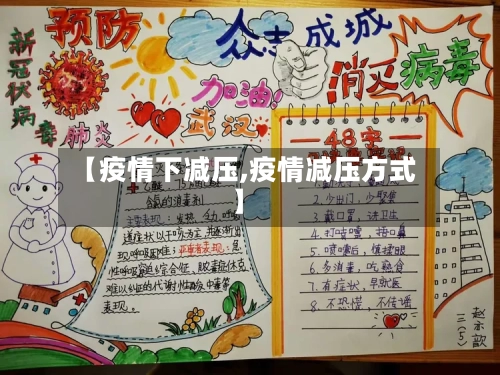 新冠状病毒肺炎
预防
众志成城
消灭病毒
加油!
武汉
【疫情下减压,疫情减压方式
】
48字
乙醚、75%
含氯的消毒剂
主要表现:发热、乏力、呼吸
道症状以干咳为主,并逐渐出
现呼吸困难;严重者表现:急
性呼吸窘迫综合征、脓毒症休克、
难以纠正的代谢性酸中毒等
表现。
2.少出门,少聚集
3.戴口罩,讲卫生
4.打喷嚏,捂口鼻
5.喷嚏后,慎揉眼
6.多消毒,吃熟食
7.有症状,早就医
8.不恐慌,不传谣
三(5)